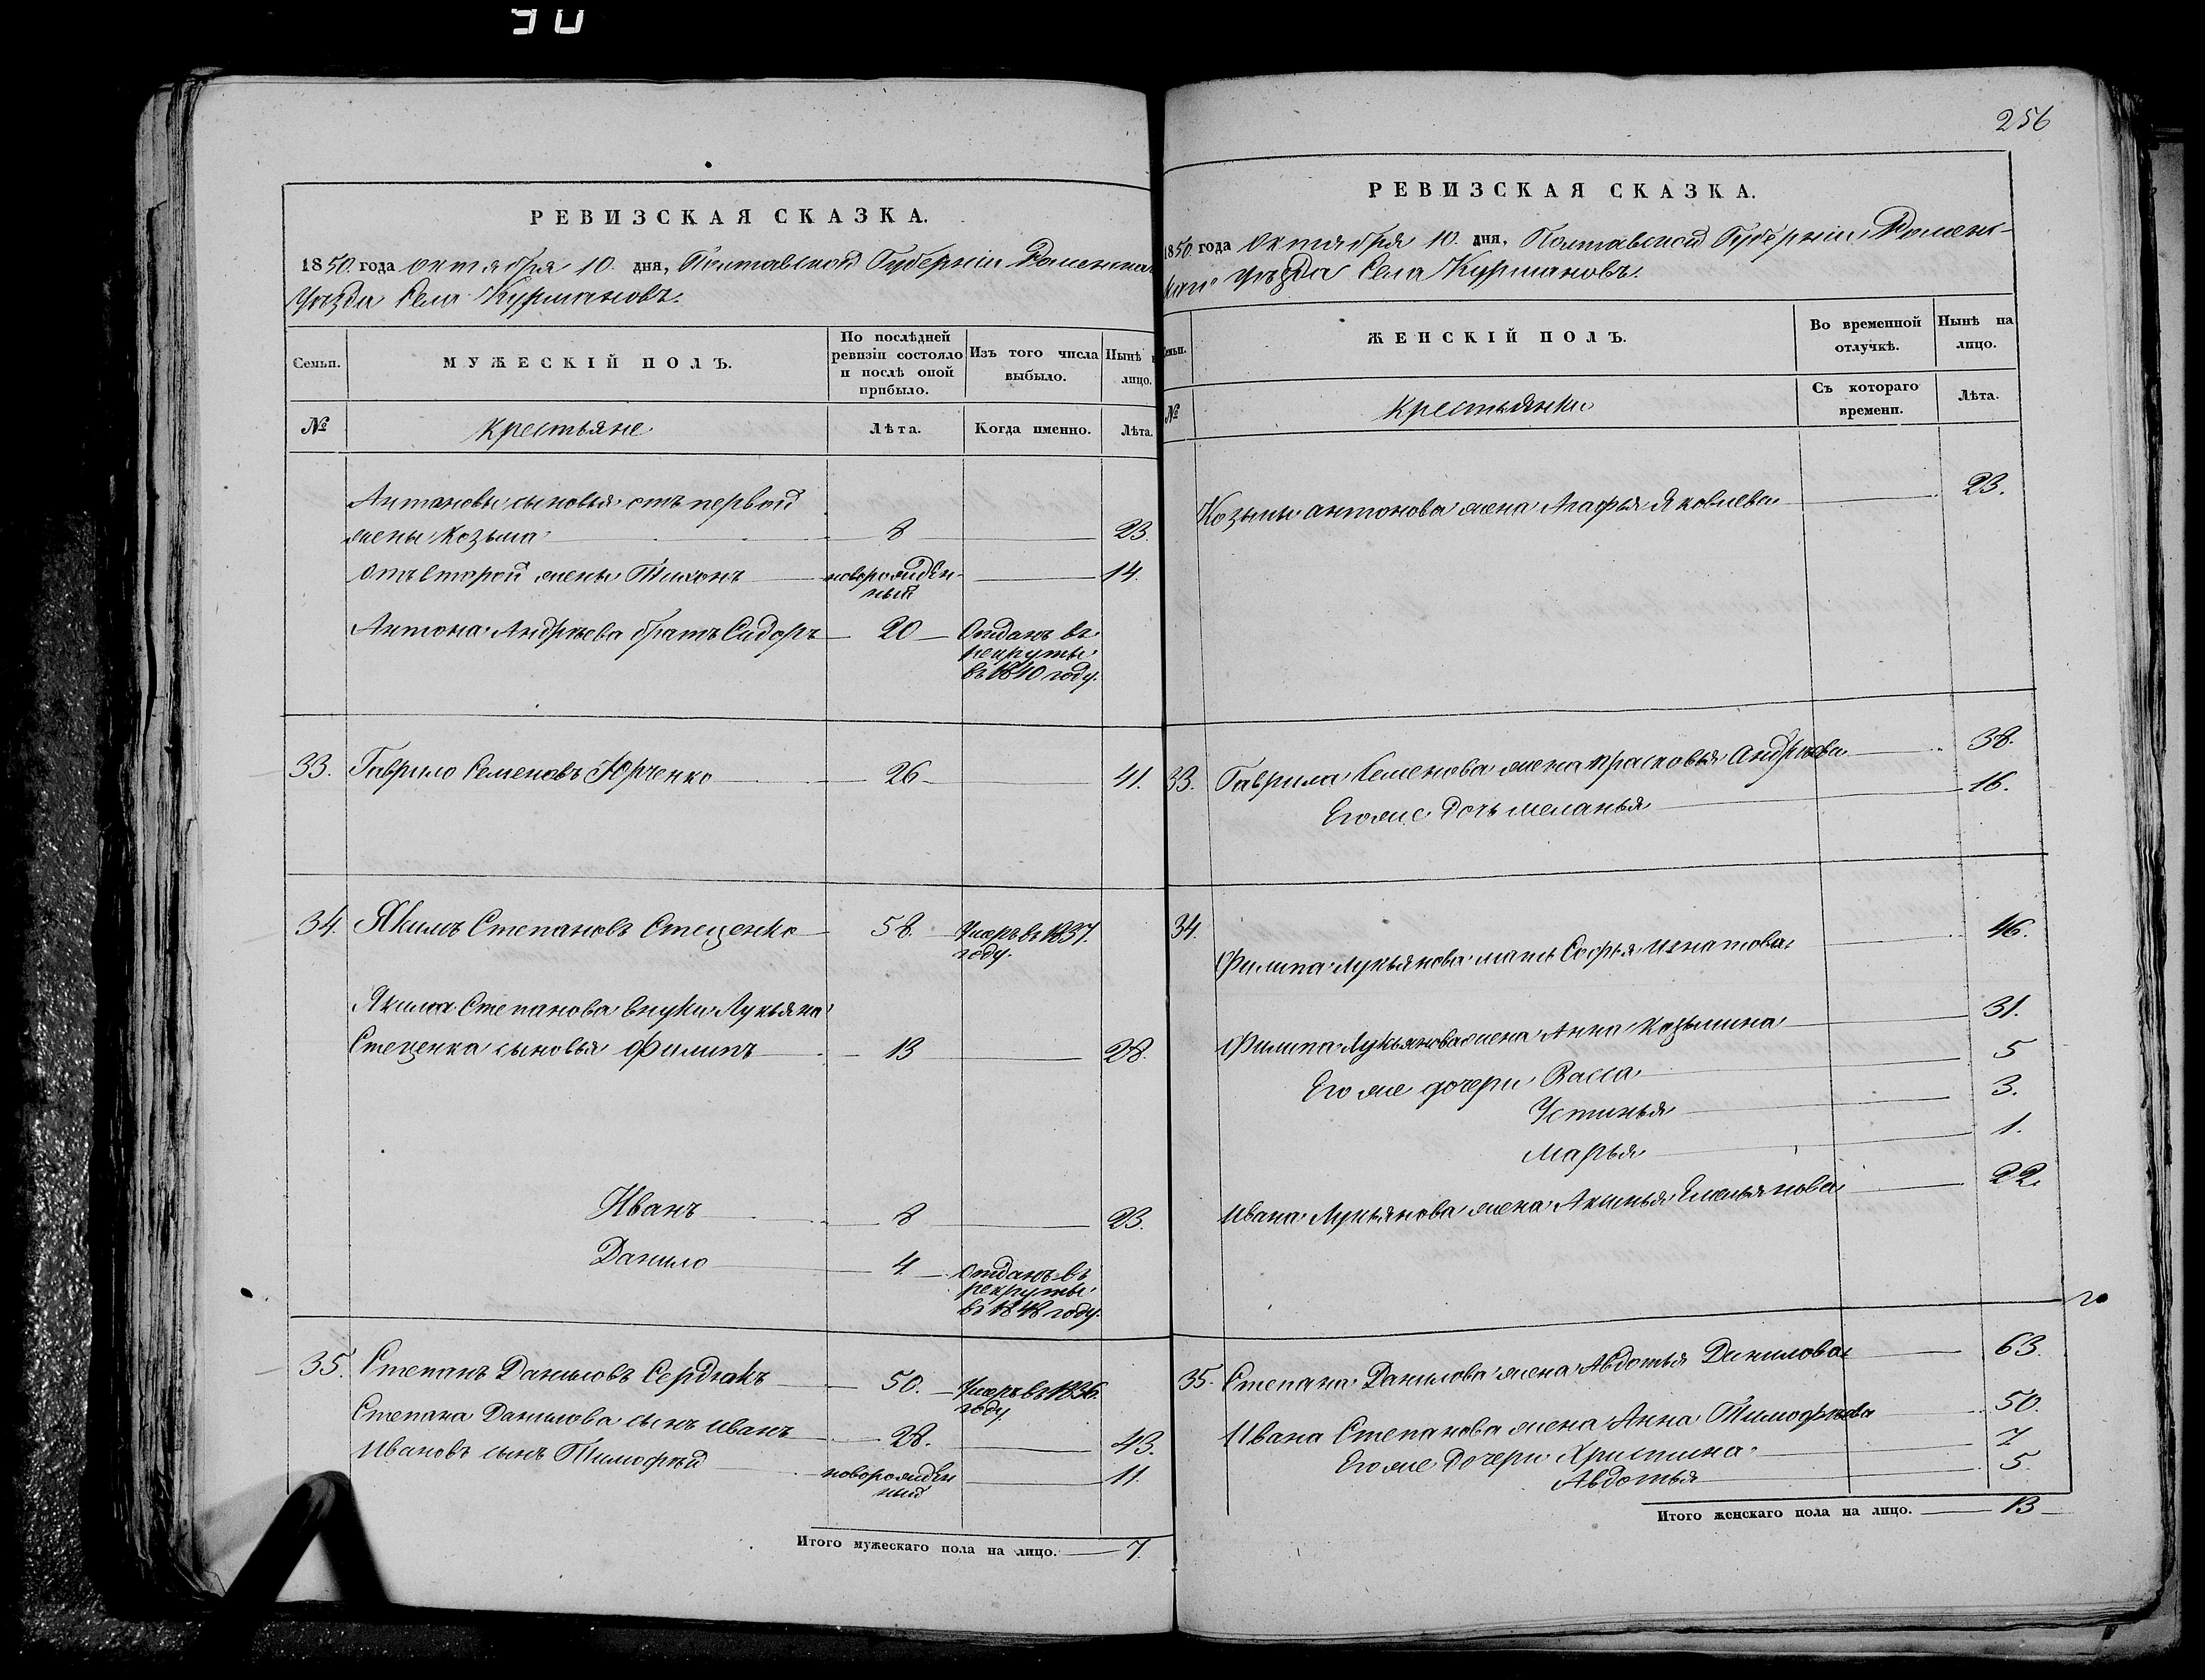 30
РЕВИЗСКАЯ СКАЗКА.
1850. года октября 10. дня, Полтавской Губерніи Роменска
Уѣзда Села Курмановъ.
Семьи.
МУЖЕСКІЙ ПОЛЪ.
По послѣдней ревизіи состояло и послѣ оной прибыло.
Изъ того числа выбыло.
Нынѣ н лицо.
№
крестьяне
Лѣта.
Когда именно.
Лѣта.
Антоновы сыновья отъ первой
жены Козьма 8 23.
отъ второй жены Тихонъ новорожден- 14.
ный
Антона Андрѣева братъ Сидоръ 20 Отданъ въ
рекруты
въ 1840 году.
33. Гаврило Семеновъ Юрченко 26 41.
34. Якимъ Степановъ Стеценко 58. Умеръ въ 1837.
году.
Якима Степанова внуки Лукьяна
Стеценка сыновья Филипъ 13 28.
Иванъ 8 23.
Данило 4 отданъ въ
рекруты
въ 1848 году.
35. Степанъ Даниловъ Сердюкъ 50. Умеръ въ 1836.
году
Степана Данилова сынъ Иванъ 28. 43.
Ивановъ сынъ Тимофѣй новорожден 11.
ный
Итого мужескаго пола на лицо. 7.
256
РЕВИЗСКАЯ СКАЗКА.
1850. года октября 10. дня, Полтавской Губерніи Роменс-
каго Уѣзда Села Курмановъ.
Семьи.
ЖЕНСКІЙ ПОЛЪ.
Во временной отлучкѣ.
Нынѣ на лицо.
№
крестьянки
Съ котораго времени.
Лѣта.
Козьмы антонова жена Агафья Яковлева 23.
33. Гаврила Семенова жена прасковья Андрѣева 38.
Его же дочь меланья 16.
34. Филипа Лукьянова мать Софья Игнатова 46.
Филипа Лукьянова жена Анна Козьмина 31.
Его же дочери Васса 5
Устинья 3.
Марья 1.
Ивана Лукьянова жена Аксинья Емельянова 22.
35. Степана Данилова жена Авдотья Данилова 63.
Ивана Степанова жена Анна Тимофѣева 50.
Его же дочери Христина 7
Авдотья 5
Итого женскаго пола на лицо. 13